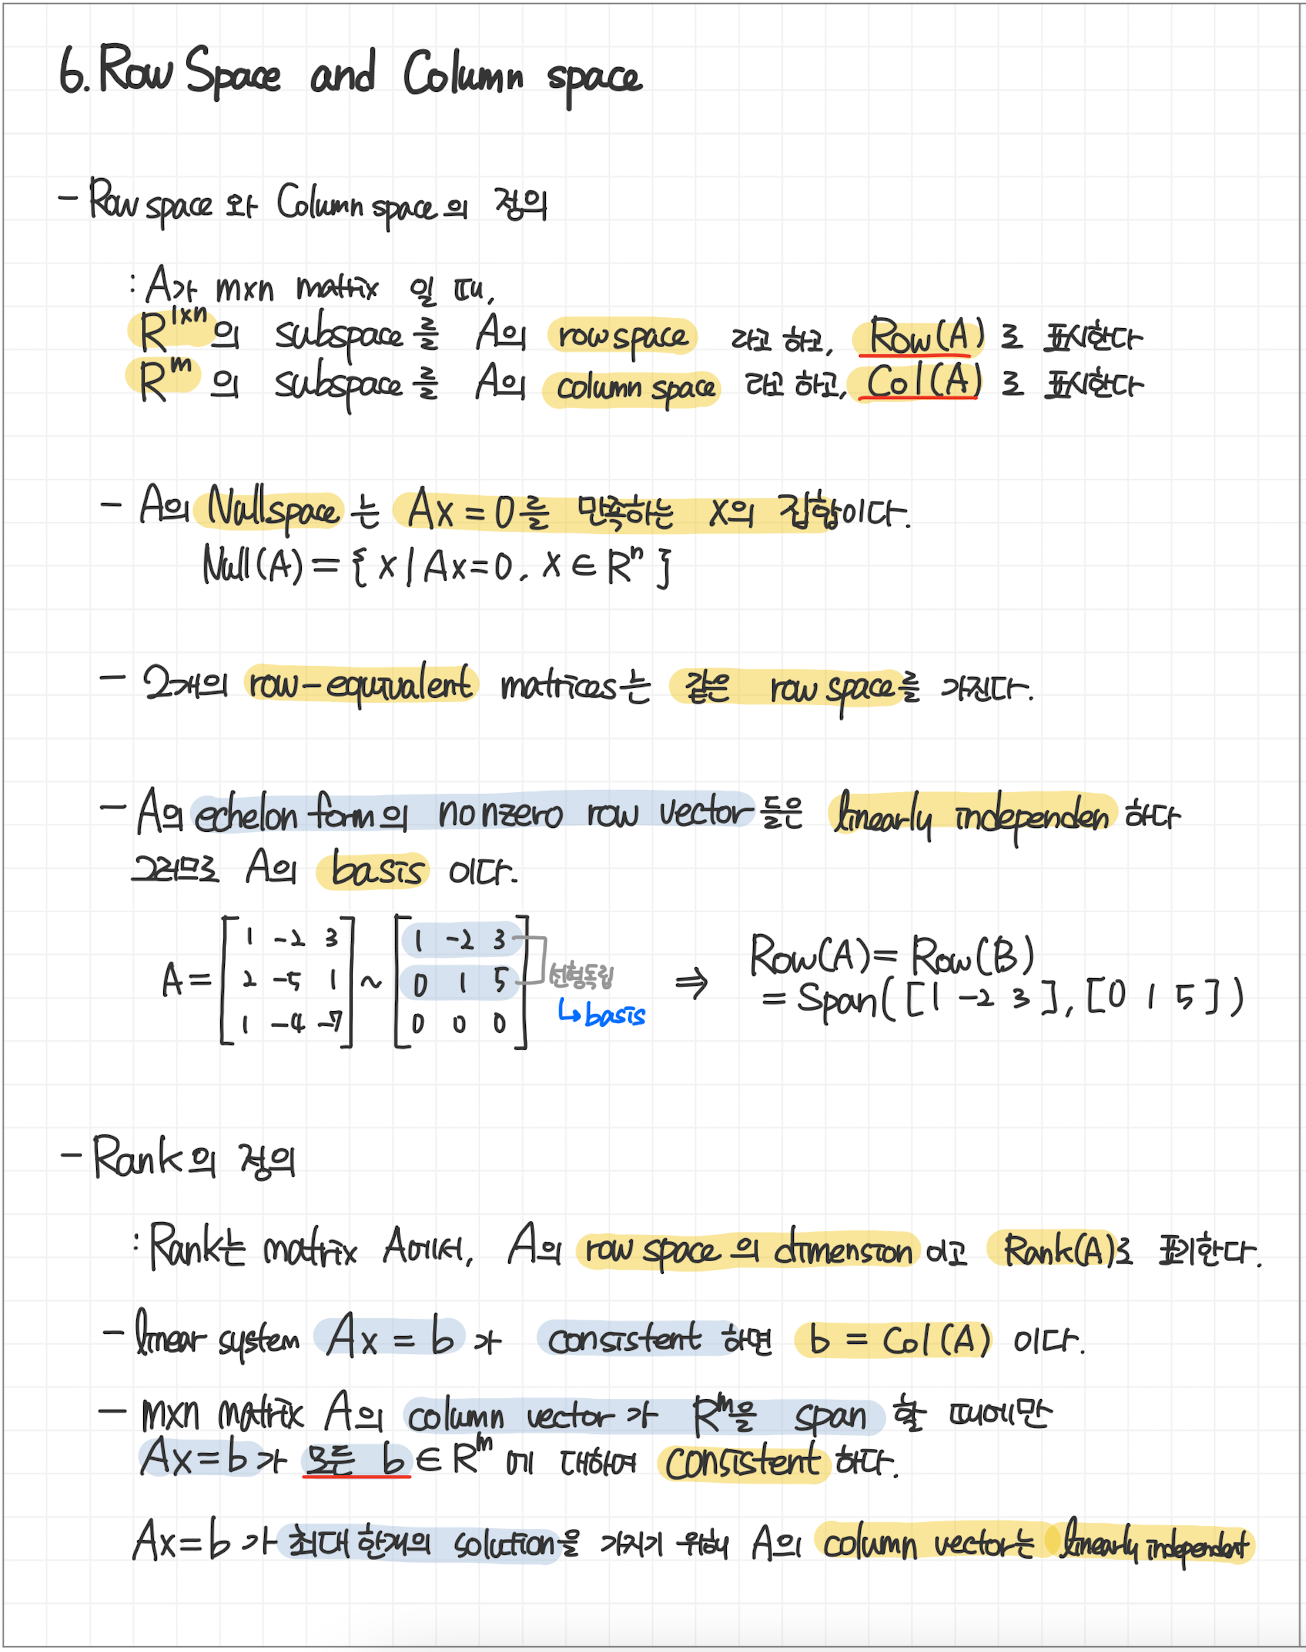 6. Row Space and Column space
- Row space 와 Column space의 정의
: A가 mxn matrix 일 때,
R^1xn의 subspace를 A의 row space 라고 하고, Row(A)로 표시한다
R^m의 subspace를 A의 column space 라고 하고, Col(A)로 표시한다
- A의 Nullspace는 Ax=0를 만족하는 x의 집합이다.
Null(A) = { x | Ax=0, x ∈ R^n }
- 2개의 row-equivalent matrices는 같은 row space를 가진다.
- A의 echelon form의 nonzero row vector들은 linearly independen 하다
그러므로 A의 basis 이다.
A = [1 -2 3 ~ [1 -2 3 ⇒ Row(A) = Row(B)
2 -5 1 0 1 5 선형독립 = Span([1 -2 3], [0 1 5])
1 -4 -7] 0 0 0] ↳ basis
- Rank의 정의
: Rank는 matrix A에서, A의 row space의 dimension 이고 Rank(A)로 표기한다.
- linear system Ax = b가 consistent 하면 b = Col(A) 이다.
- mxn matrix A의 column vector가 R^m을 span 할 때에만
Ax=b가 모든 b ∈ R^m에 대하여 consistent 하다.
Ax=b가 최대 한개의 solution을 가지기 위해 A의 column vector는 linearly independent